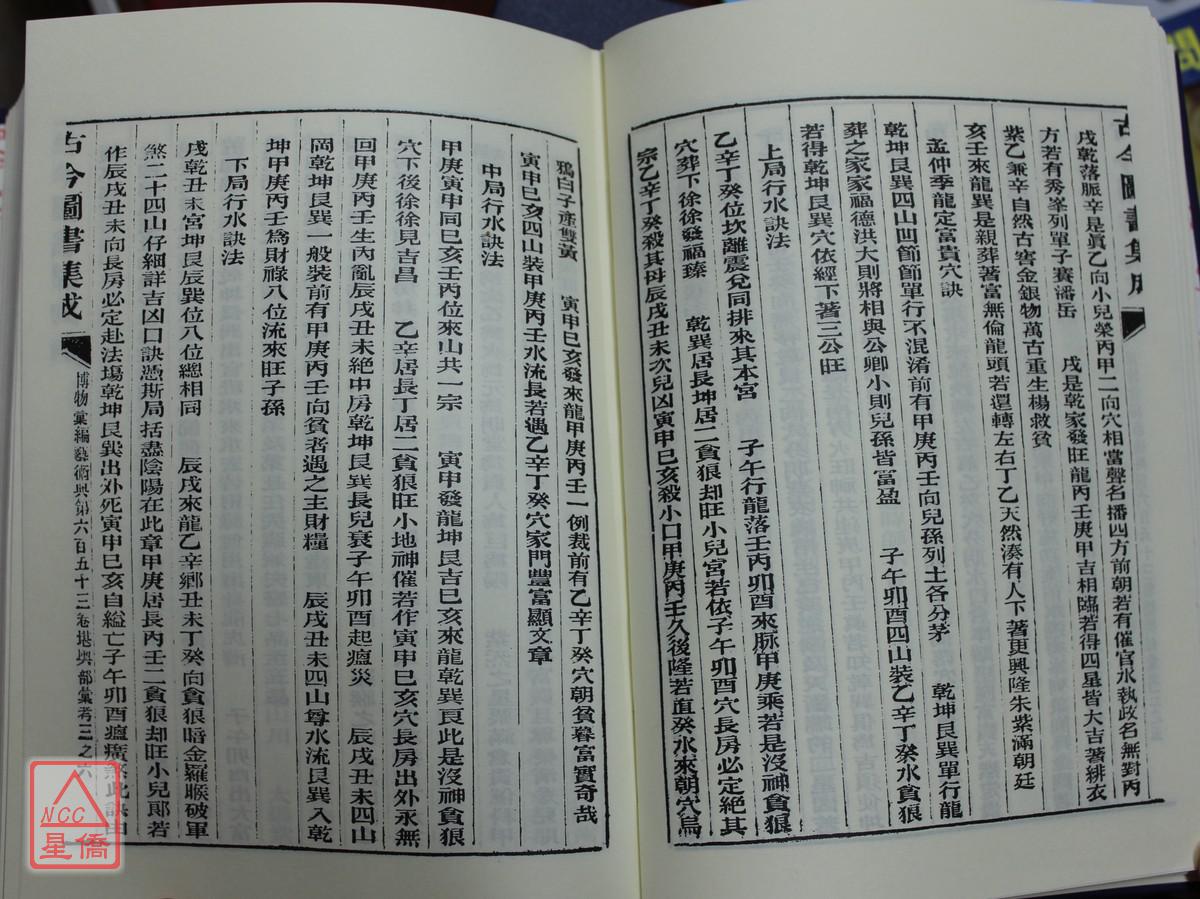 古今圖書集成
戌乾落脈辛是眞乙向小兒榮丙甲二向穴相當聲名播四方前朝若有催官水執政名無對丙
方若有秀峯列單子賽潘岳　戌是乾家發旺龍丙壬庚甲吉相臨若得四星皆大吉著緋衣
紫乙兼辛自然古窖金銀物萬古重生楊救貧
亥壬來龍巽是親葬著富無倫龍頭若還轉左右丁乙天然湊有人下著更興隆朱紫滿朝廷
孟仲季龍定富貴穴訣
乾坤艮巽四山凹節節單行不混淆前有甲庚丙壬向兒孫列土各分茅　乾坤艮巽單行龍
葬之家家福德洪大則將相與公卿小則兒孫皆富盈　子午卯酉四山裝乙辛丁癸水貪狼
若得乾坤艮巽穴依經下著三公旺
上局行水訣法
乙辛丁癸位坎離震兌同排來其本宮　子午行龍落壬丙卯酉來脉甲庚乘若是沒神貪狼
穴葬下徐徐發福臻　乾巽居長坤居二貪狼却旺小兒宮若依子午卯酉穴長房必定絕其
宗乙辛丁癸殺其母辰戌丑未次兒凶寅申巳亥殺小口甲庚丙壬久後隆若直癸水來朝穴烏
鴉白子產雙黃　寅申巳亥發來龍甲庚丙壬一例裁前有乙辛丁癸穴朝貧暮富實奇哉
寅申巳亥四山裝甲庚丙壬水流長若遇乙辛丁癸穴家門豐富顯文章
中局行水訣法
甲庚寅申同巳亥壬丙位來山共一宗　寅申發龍坤艮吉巳亥來龍乾巽良此是沒神貪狼
穴下後徐徐見吉昌　乙辛居長丁居二貪狼却旺小地神催若作寅申巳亥穴長房出外永無
回甲庚丙壬生內亂辰戌丑未絕中房乾坤艮巽長兒衰子午卯酉起瘟災　辰戌丑未四山
岡乾坤艮巽一般裝前有甲庚丙壬向貧者遇之主財糧　辰戌丑未四山尊水流艮巽入乾
坤甲庚丙壬爲財祿八位流來旺子孫
下局行水訣法
戌乾丑未宮坤艮辰巽位八位總相同　辰戌來龍乙辛鄉丑未丁癸向貪狼暗金羅睺破軍
煞二十四山仔細詳吉凶口訣憑斯局括盡陰陽在此章甲庚居長丙壬二貪狼却旺小兒郞若
作辰戌丑未向長房必定赴法場乾坤艮巽出外死寅申巳亥自縊亡子午卯酉瘟㾮煞此訣由
古今圖書集成
博物彙編藝術典第六百五十三卷堪輿部彙考三之六
NCC
星僑